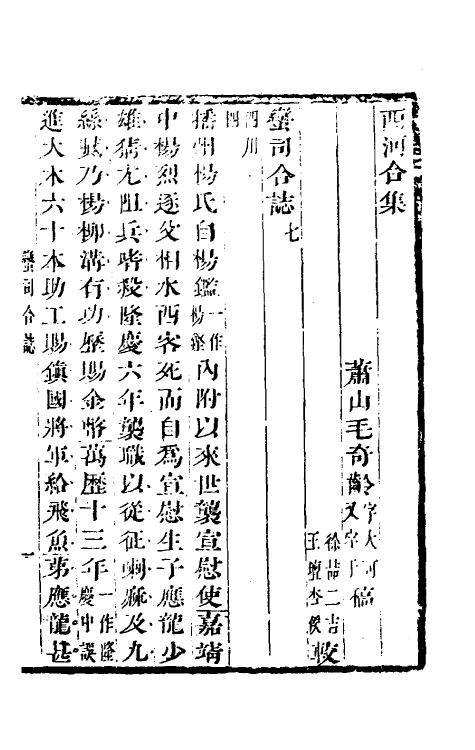 西河合集
蕭山毛奇齡字大可又字于稿
徐喆二吉
王 校
蠻司合誌七
四川
四
播州楊氏自楊鑑一作楊鏗內附以來世襲宣慰使嘉靖
中楊烈逐父相水西客死而自爲宣慰生子應龍少
雄猜尤阻兵嗜殺隆慶六年襲職以從征喇嘛及九
絲 乃楊柳溝有功歷賜金幣萬歷十三年一作隆慶中誤
進大木六十本助工賜鎮國將軍給飛魚茅應龍甚
蠻司合誌
一